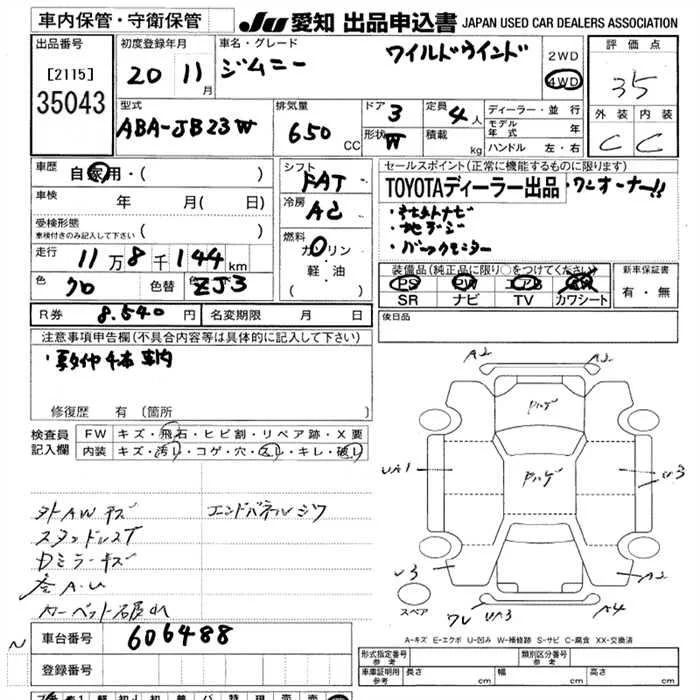 車内保管・守衛保管
JU 愛知 出品申込書 JAPAN USED CAR DEALERS ASSOCIATION
出品番号
[2115]
35043
初度登録年月
20 11月
車名・グレード
ジムニー ワイルドウインド
2WD
4WD
評価点
3.5
外装 内装
C C
型式
ABA-JB23W
排気量
650 CC
ドア 3
形状 W
定員 4 人
積載 kg
ディーラー・並行
モデル年式 年
ハンドル 左・右
車歴
自家用・( )
車検 年 月( 日)
受検形態
車検付きのみ記入して下さい ( )
走行 11万8千144km
色 クロ 色替 色 ZJ3
シフト
FAT
冷房
AC
燃料
ガソリン
・軽・油
( )
セールスポイント(正常に機能するものに限ります)
TOYOTAディーラー出品・ワンオーナー!!
・社外ナビ
・地デジ
・バックモニター
装備品(純正品に限り○をつけてください)
PS PW エアB
SR ナビ TV カワシート
新車保証書
有・無
R券 8.540円 名変期限 月 日
後日品
注意事項申告欄(不具合内容等は具体的に記入して下さい)
車内
修復歴 有(箇所
検査員記入欄
FW キズ・飛石・ヒビ割・リペア跡・X要
内装 キズ・汚レ・コゲ・穴・スレ・キレ・破レ
外AWキズ エンドパネルシワ
スタッドレスT
Dミラーキズ
全A.U
A2 A3
ハゲ
ハゲ
UA1 U3
U3 A2
スペア
ワレ UA3 A4
A-キズ E-エクボ U-凹み W-補修跡 S-サビ C-腐食 XX-交換済
車台番号 606488
登録番号
形式指定番号 参考
類別区分番号 参考
車庫証明用 参考 長さ cm 幅 cm 高さ cm